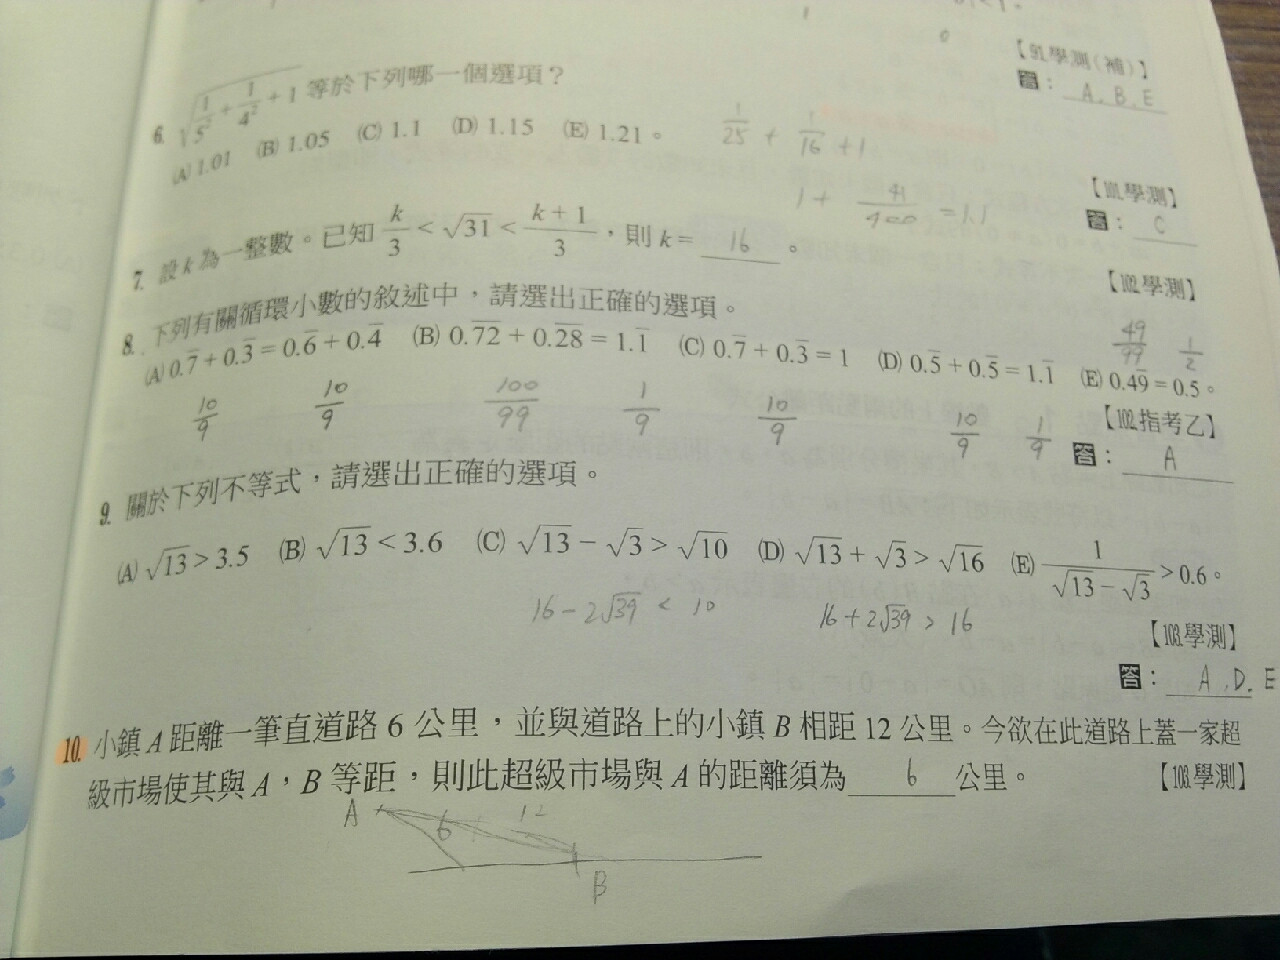 【91.學測(補)】
答：A.B.E
6. √(1/5² + 1/4² + 1) 等於下列哪一個選項？
(A) 1.01 (B) 1.05 (C) 1.1 (D) 1.15 (E) 1.21。
1/25 + 1/16 + 1
1 + 41/400 = 1.1
【101.學測】
答：C
7. 設 k 為一整數。已知 k/3 < √31 < (k+1)/3，則 k = 16 。
【102.學測】
8. 下列有關循環小數的敘述中，請選出正確的選項。
(A) 0.7̅ + 0.3̅ = 0.6̅ + 0.4̅ (B) 0.7̅2̅ + 0.2̅8̅ = 1.1̅ (C) 0.7̅ + 0.3̅ = 1 (D) 0.5̅ + 0.5̅ = 1.1̅ (E) 0.49̅ = 0.5。
49/99 1/2
10/9 10/9 100/99 1/9 10/9 10/9 1/9
【102.指考乙】
答：A
9. 關於下列不等式，請選出正確的選項。
(A) √13 > 3.5 (B) √13 < 3.6 (C) √13 − √3 > √10 (D) √13 + √3 > √16 (E) 1/(√13 − √3) > 0.6。
16 − 2√39 < 10 16 + 2√39 > 16
【103.學測】
答：A.D.E
10. 小鎮 A 距離一筆直道路 6 公里，並與道路上的小鎮 B 相距 12 公里。今欲在此道路上蓋一家超
級市場使其與 A，B 等距，則此超級市場與 A 的距離須為 6 公里。
【103.學測】
A 6 12
B